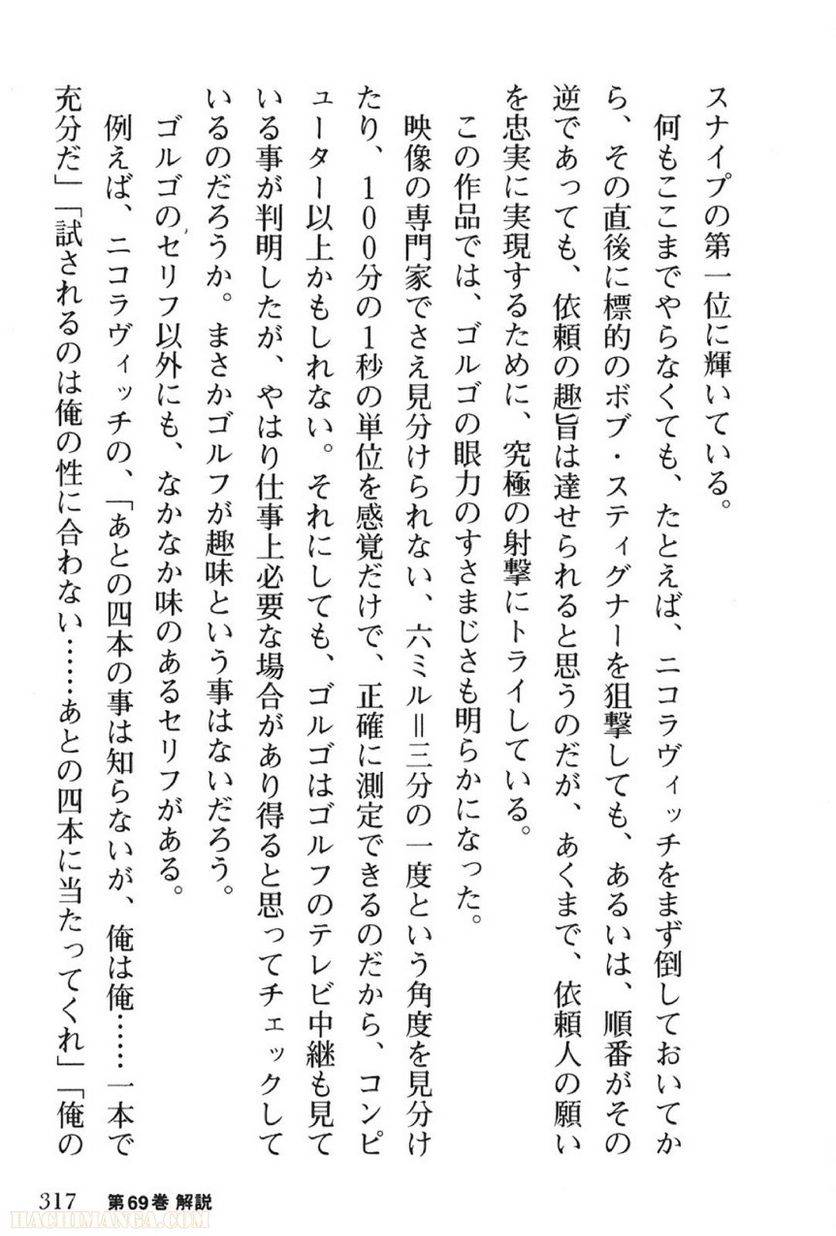 スナイプの第一位に輝いている。
何もここまでやらなくても、たとえば、ニコラヴィッチをまず倒しておいてか
ら、その直後に標的のボブ・スティグナーを狙撃しても、あるいは、順番がその
逆であっても、依頼の趣旨は達せられると思うのだが、あくまで、依頼人の願い
を忠実に実現するために、究極の射撃にトライしている。
この作品では、ゴルゴの眼力のすさまじさも明らかになった。
映像の専門家でさえ見分けられない、六ミル＝三分の一度という角度を見分け
たり、100分の1秒の単位を感覚だけで、正確に測定できるのだから、コンピ
ューター以上かもしれない。それにしても、ゴルゴはゴルフのテレビ中継も見て
いる事が判明したが、やはり仕事上必要な場合があり得ると思ってチェックして
いるのだろうか。まさかゴルフが趣味という事はないだろう。
ゴルゴのセリフ以外にも、なかなか味のあるセリフがある。
例えば、ニコラヴィッチの、「あとの四本の事は知らないが、俺は俺……一本で
充分だ」「試されるのは俺の性に合わない……あとの四本に当たってくれ」「俺の
317 第69巻 解説
HACHIMANGA.COM